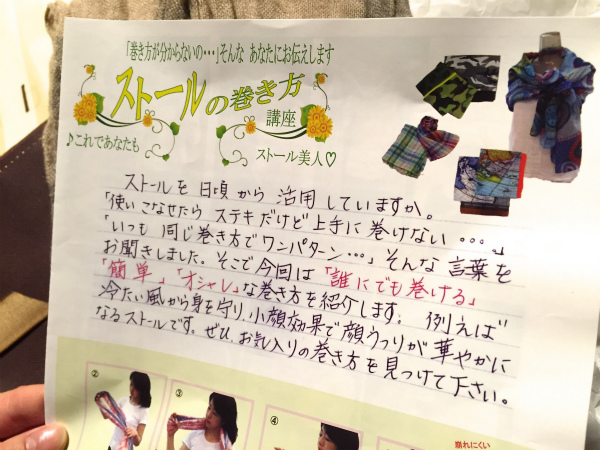 「巻き方が分からないの・・・」そんな あなたにお伝えします
ストールの巻き方
講座
♪これであなたも
ストール美人♡
ストールを 日頃 から 活用 していますか。
「使い こなせたら ステキ だけど 上手に 巻けない ・・・。」
「いつも 同じ 巻き方で ワンパターン・・・」 そんな 言葉を
お聞きしました。そこで 今回は 「誰にでも巻ける」
「簡単」「オシャレ」な 巻き方 を 紹介します。 例えば
冷たい風から身を守り、小顔効果で顔うつりが華やかに
なるストールです。ぜひ、お気入りの巻き方を見つけて下さい。
②
③
④
崩れにくい